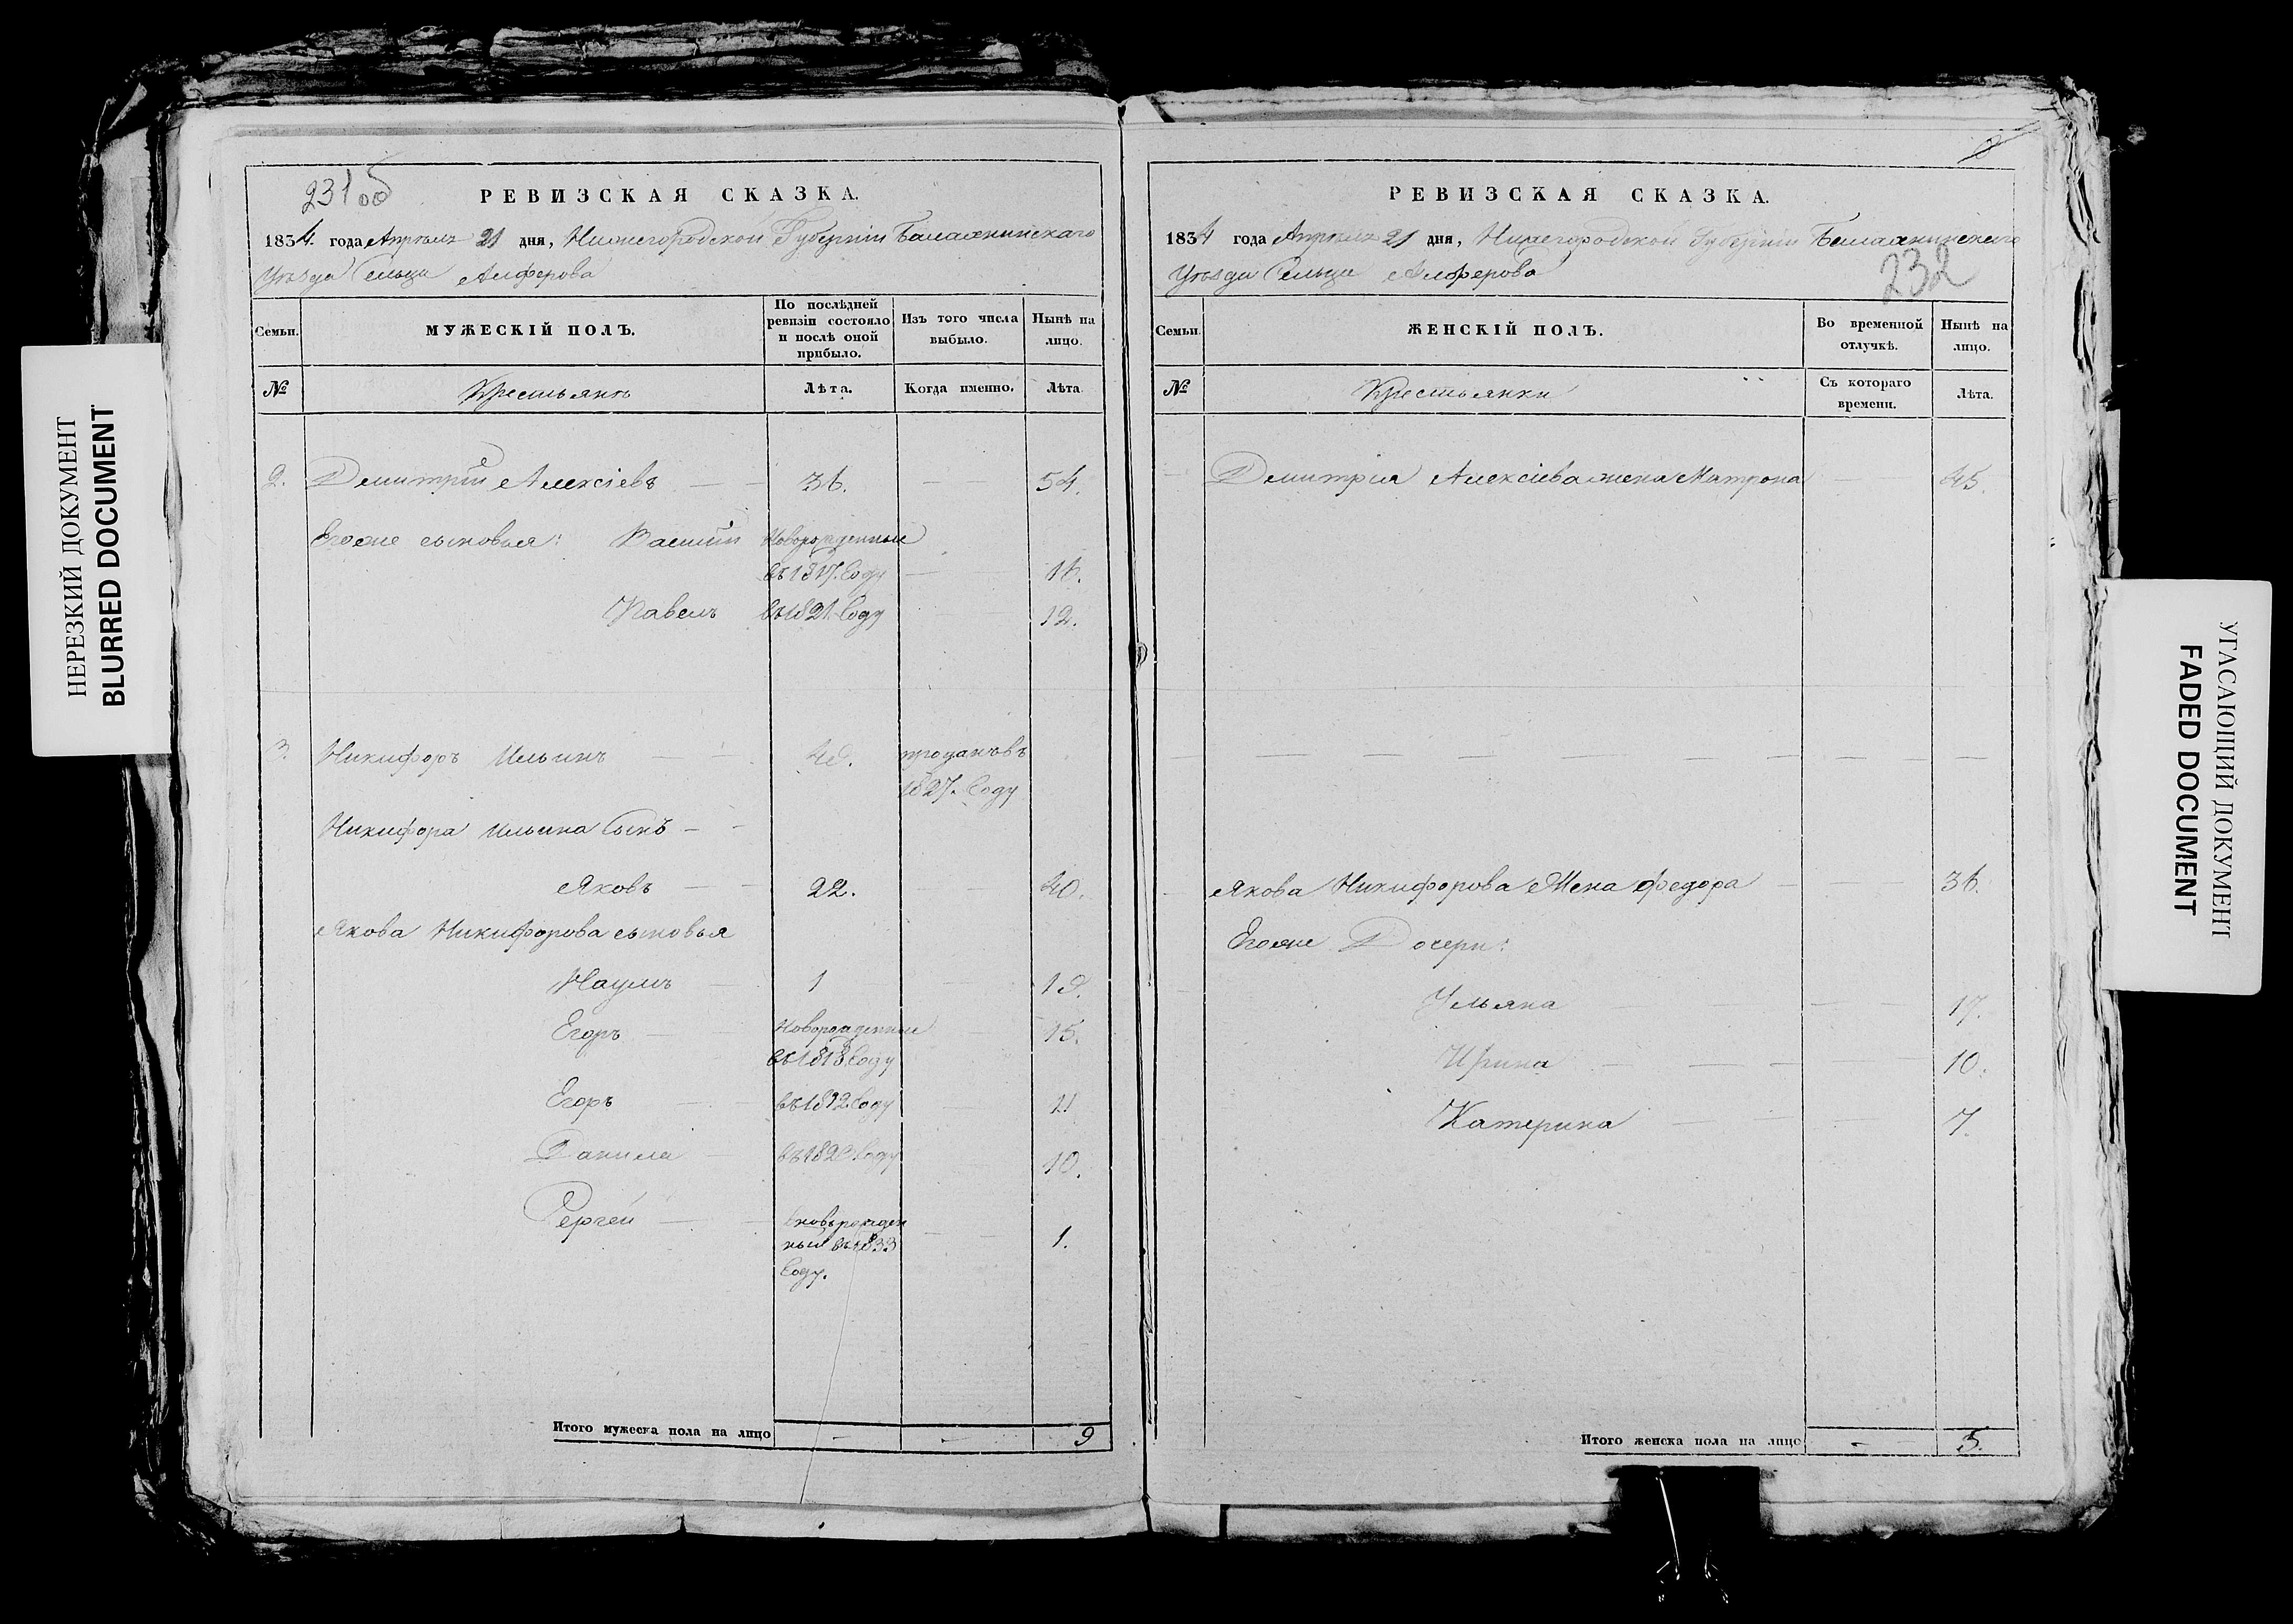 НЕРЕЗКИЙ ДОКУМЕНТ
BLURRED DOCUMENT
231 об
РЕВИЗСКАЯ СКАЗКА.
1834. года Апреля 21 дня, Нижегородской Губернiи Балахнинскаго
Уѣзда Сельца Алферова
Семьи.
МУЖЕСКIЙ ПОЛЪ.
По послѣдней ревизiи состояло и послѣ оной прибыло.
Изъ того числа выбыло.
Нынѣ на лицо.
№
Крестьянъ
Лѣта.
Когда именно.
Лѣта
2. Дмитрiй Алексiевъ — 36. — 54.
Егоже сыновья: Василiй Новорожденные
въ 1817. Году — 16.
Павелъ въ 1821 Году — 12.
3. Никифоръ Ильинъ — 48.
1827. Году
Никифора Ильина Сынъ —
Яковъ — 22. — 40.
Якова Никифорова сыновья
Наумъ — 1 — 19.
Егоръ — Новорожденные — 15.
въ 1818 Году
Егоръ — въ 1822 Году — 11
Данила — въ 1823 Году — 10.
Сергей — вновьрожден — 1.
ный въ 1833
Году.
Итого мужеска пола на лицо — — 9
РЕВИЗСКАЯ СКАЗКА.
1834 года Апреля 21 дня, Нижегородской Губернiи Балахнинскаго
Уѣзда Сельца Алферова
232
Семьи.
ЖЕНСКIЙ ПОЛЪ.
Во временной отлучкѣ.
Нынѣ на лицо.
№
Крестьянки
Съ котораго времени.
Лѣта.
Дмитрiя Алексiева жена Матрона — 45.
Якова Никифорова Жена Федора — 36.
Егоже Дочери:
Ульяна — 17.
Ирина — 10.
Катерина — 7.
Итого женска пола на лицо - 5.
УГАСАЮЩИЙ ДОКУМЕНТ
FADED DOCUMENT